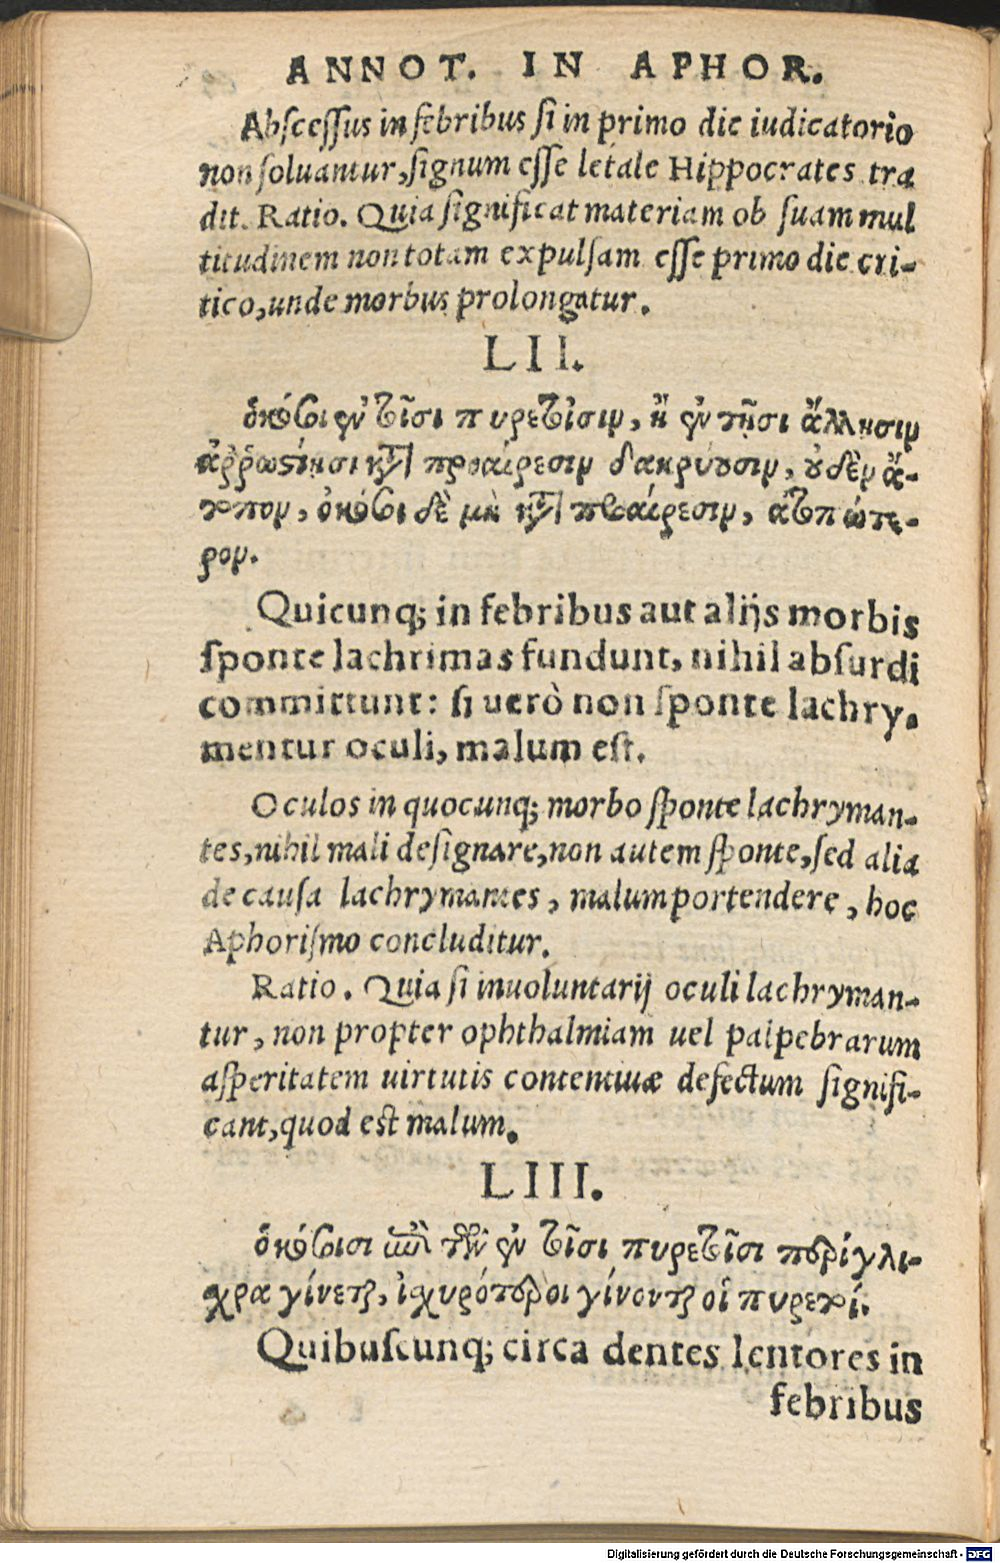 ANNOT. IN APHOR.
Abscessus in febribus si in primo die iudicatorio
non soluantur, signum esse letale Hippocrates tra
dit. Ratio. Quia significat materiam ob suam mul
titudinem non totam expulsam esse primo die cri-
tico, unde morbus prolongatur.
LII.
ὁκόσοι ἐν τοῖσι πυρετοῖσιν, ἢ ἐν τῇσι ἄλλησιν
ἀῤῥωστίῃσι κατὰ προαίρεσιν δακρύουσιν, οὐδὲν ἄ-
τοπον, ὁκόσοι δὲ μὴ κατὰ προαίρεσιν, ἀτοπώτε-
ρον.
Quicunq; in febribus aut alijs morbis
sponte lachrimas fundunt, nihil absurdi
committunt: si uerò non sponte lachry-
mentur oculi, malum est.
Oculos in quocunq; morbo sponte lachryman-
tes, nihil mali designare, non autem sponte, sed alia
de causa lachrymantes, malum portendere, hoc
Aphorismo concluditur.
Ratio. Quia si inuoluntarij oculi lachryman-
tur, non propter ophthalmiam uel palpebrarum
asperitatem uirtutis contentiuæ defectum signifi-
cant, quod est malum.
LIII.
ὁκόσοισι ἐπὶ τῶν ἐν τοῖσι πυρετοῖσι περίγλι-
χρα γίνεται, ἰχυρότεροι γίνονται οἱ πυρετοί.
Quibuscunq; circa dentes lentores in
febribus
Digitalisierung gefördert durch die Deutsche Forschungsgemeinschaft - DFG